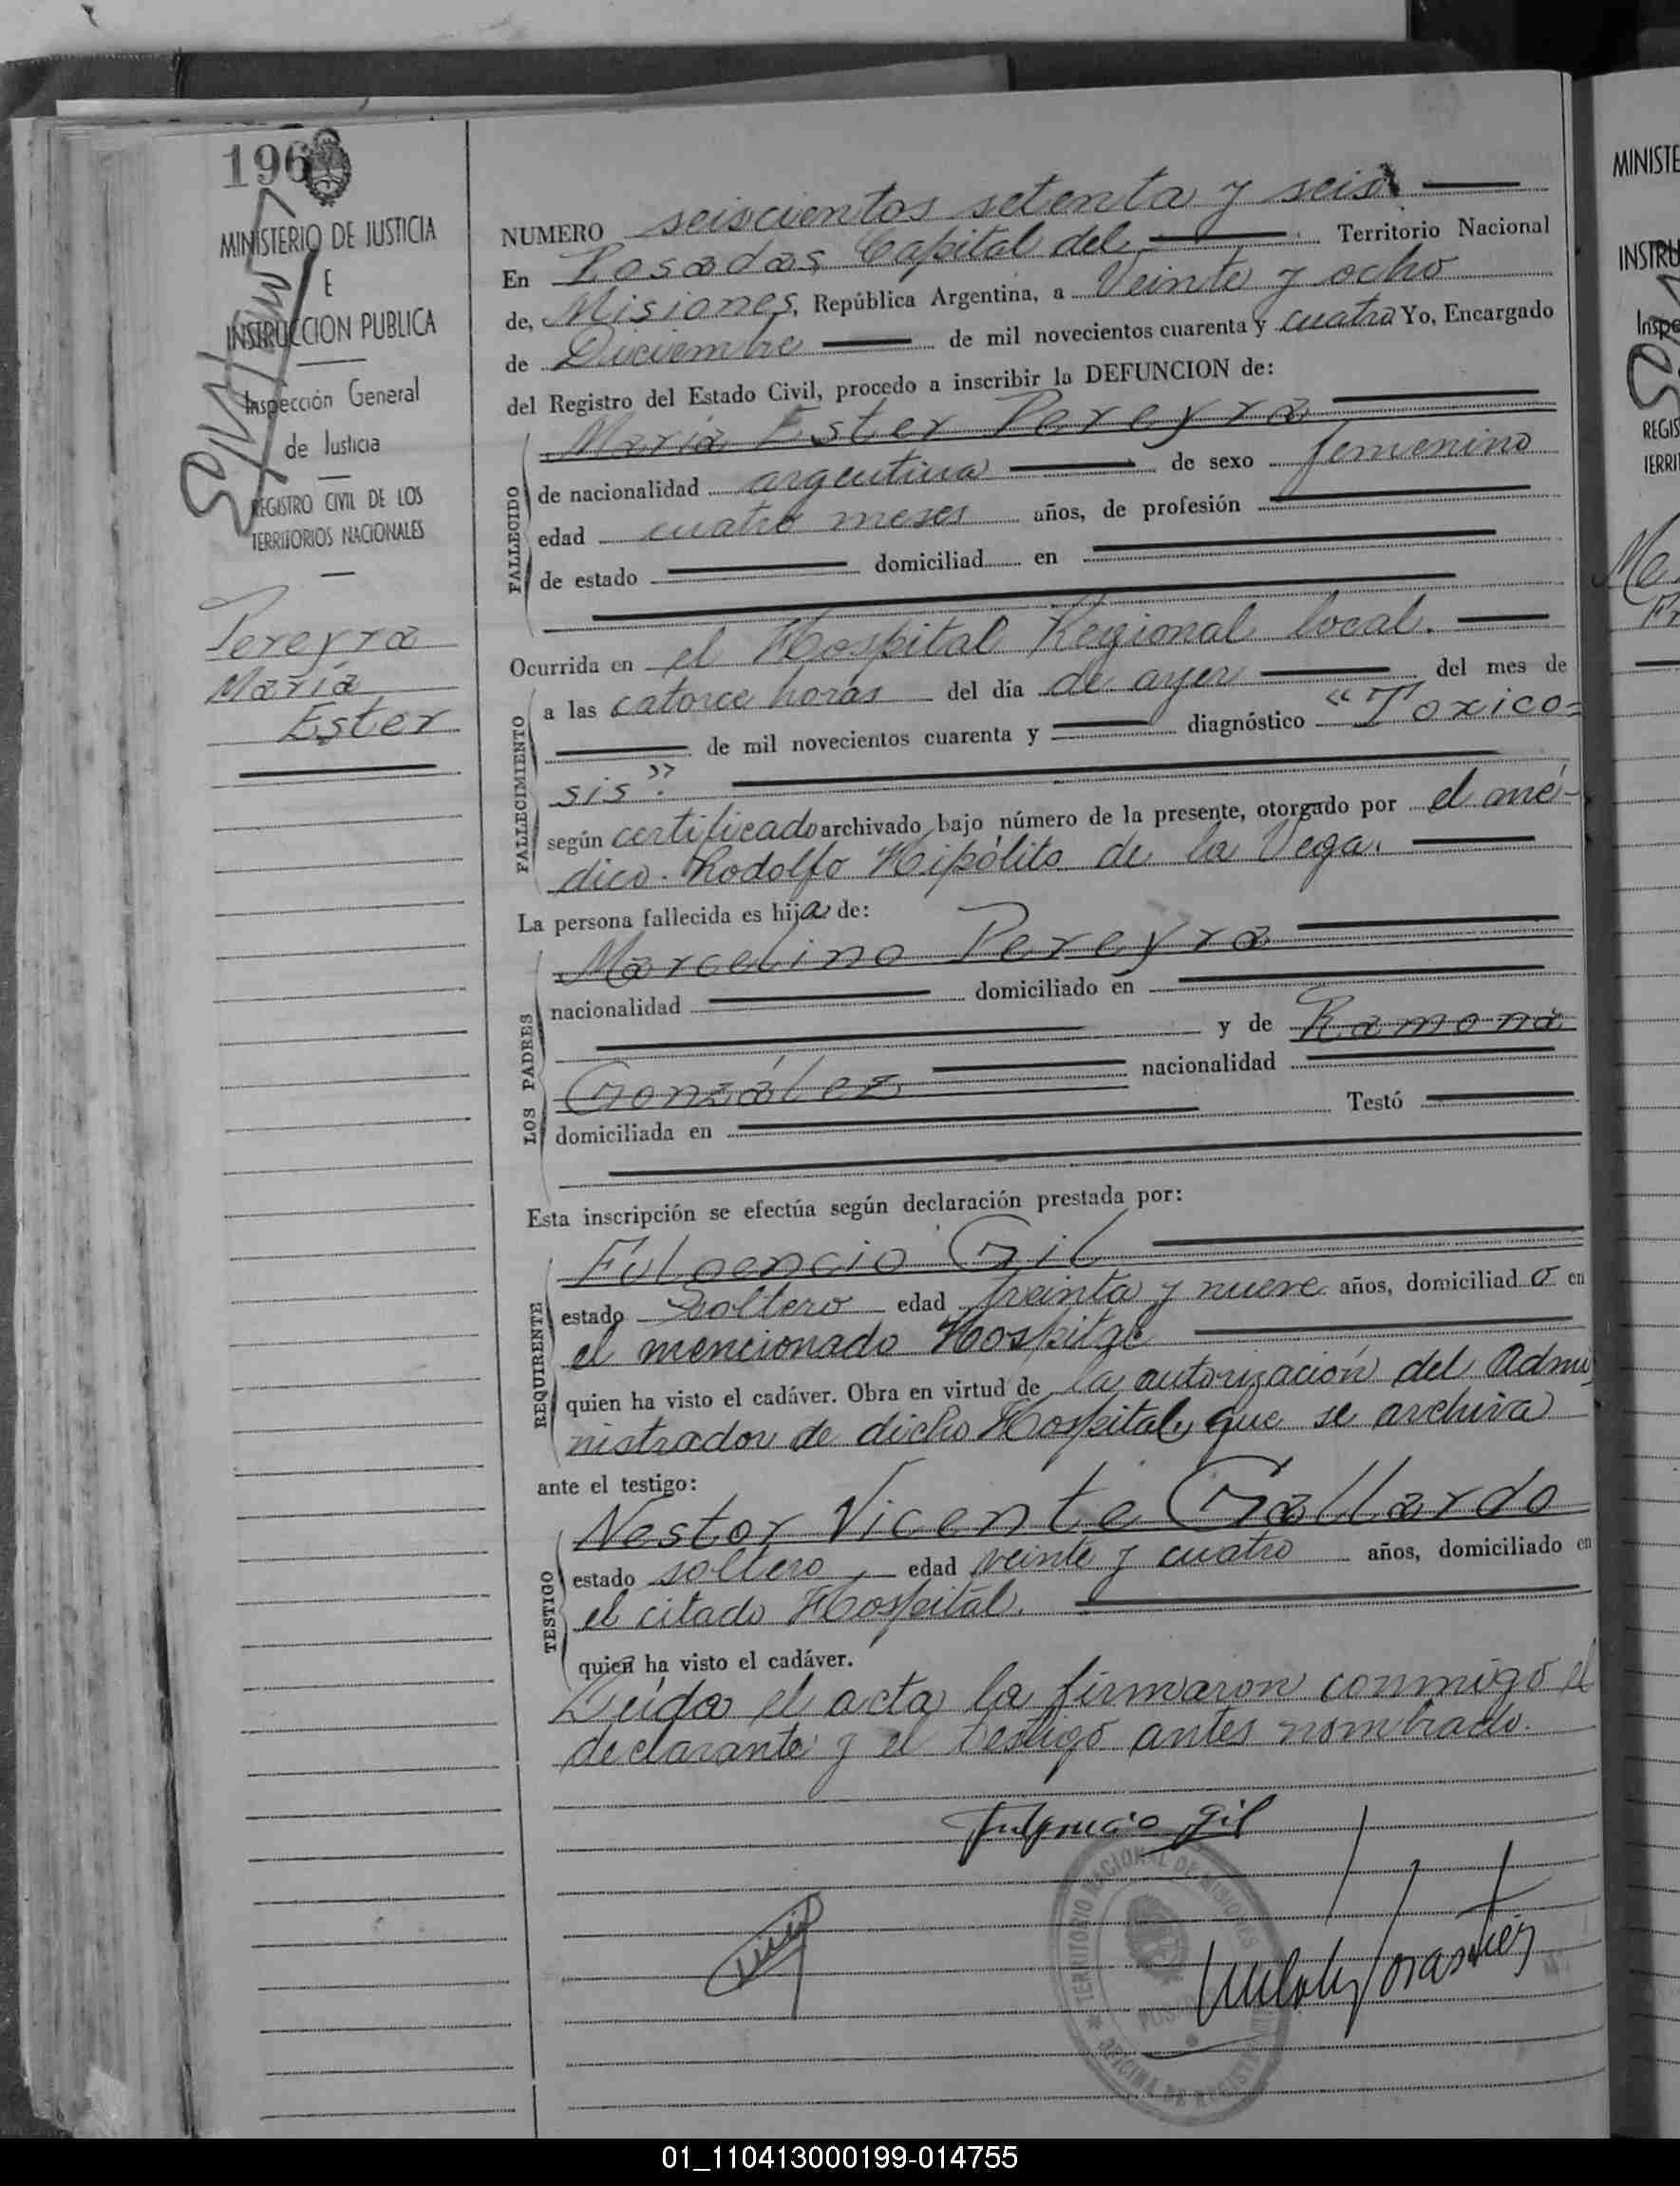 196
MINISTERIO DE JUSTICIA
E
INSTRUCCION PUBLICA
Inspección General
de Justicia
REGISTRO CIVIL DE LOS
TERRITORIOS NACIONALES
Pereyra
María
Ester
NUMERO seiscientos setenta y seis
En Posadas Capital del Territorio Nacional
de, Misiones, República Argentina, a Veinte y ocho
de Diciembre de mil novecientos cuarenta y cuatro Yo, Encargado
del Registro del Estado Civil, procedo a inscribir la DEFUNCION de:
FALLECIDO
María Ester Pereyra
de nacionalidad argentina de sexo femenino
edad cuatro meses años, de profesión
de estado domiciliad en
Ocurrida en el Hospital Regional local.
FALLECIMIENTO
a las catorce horas del día de ayer del mes de
de mil novecientos cuarenta y diagnóstico "Toxico=
sis".
según certificado archivado bajo número de la presente, otorgado por el mé-
dico Rodolfo Hipólito de la Vega.
La persona fallecida es hija de:
LOS PADRES
Marcelino Pereyra
nacionalidad domiciliado en
y de Ramona
González nacionalidad
domiciliada en Testó
Esta inscripción se efectúa según declaración prestada por:
REQUIRENTE
Fulgencio Gil
estado Soltero edad treinta y nueve años, domiciliad o en
el mencionado Hospital
quien ha visto el cadáver. Obra en virtud de la autorización del Admi
nistrador de dicho Hospital, que se archiva
ante el testigo:
TESTIGO
Nestor Vicente Gallardo
estado soltero edad veinte y cuatro años, domiciliado en
el citado Hospital.
quien ha visto el cadáver.
Leída el acta la firmaron conmigo el
declarante y el testigo antes nombrado.
Fulgencio Gil
TERRITORIO NACIONAL DE MISIONES
OFICINA DE REGISTRO
MINISTE
INSTRU
Inspe
REGIS
TERRI
01_110413000199-014755